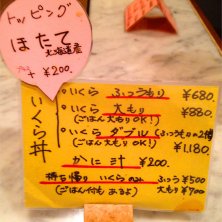 トッピング
ほたて
北海道産
プラス ¥200.
いくら丼
・いくら ふつうもり ¥680.
・いくら 大もり ¥880.
(ごはん大もりOK!)
・いくら ダブル (ふつうもりの2倍
(ごはん大もりOK!) ¥1,180.
かに汁 ¥200.
持ち帰り いくら のみ ふつう ¥500
(ごはん付もあるよ) 大もり ¥700